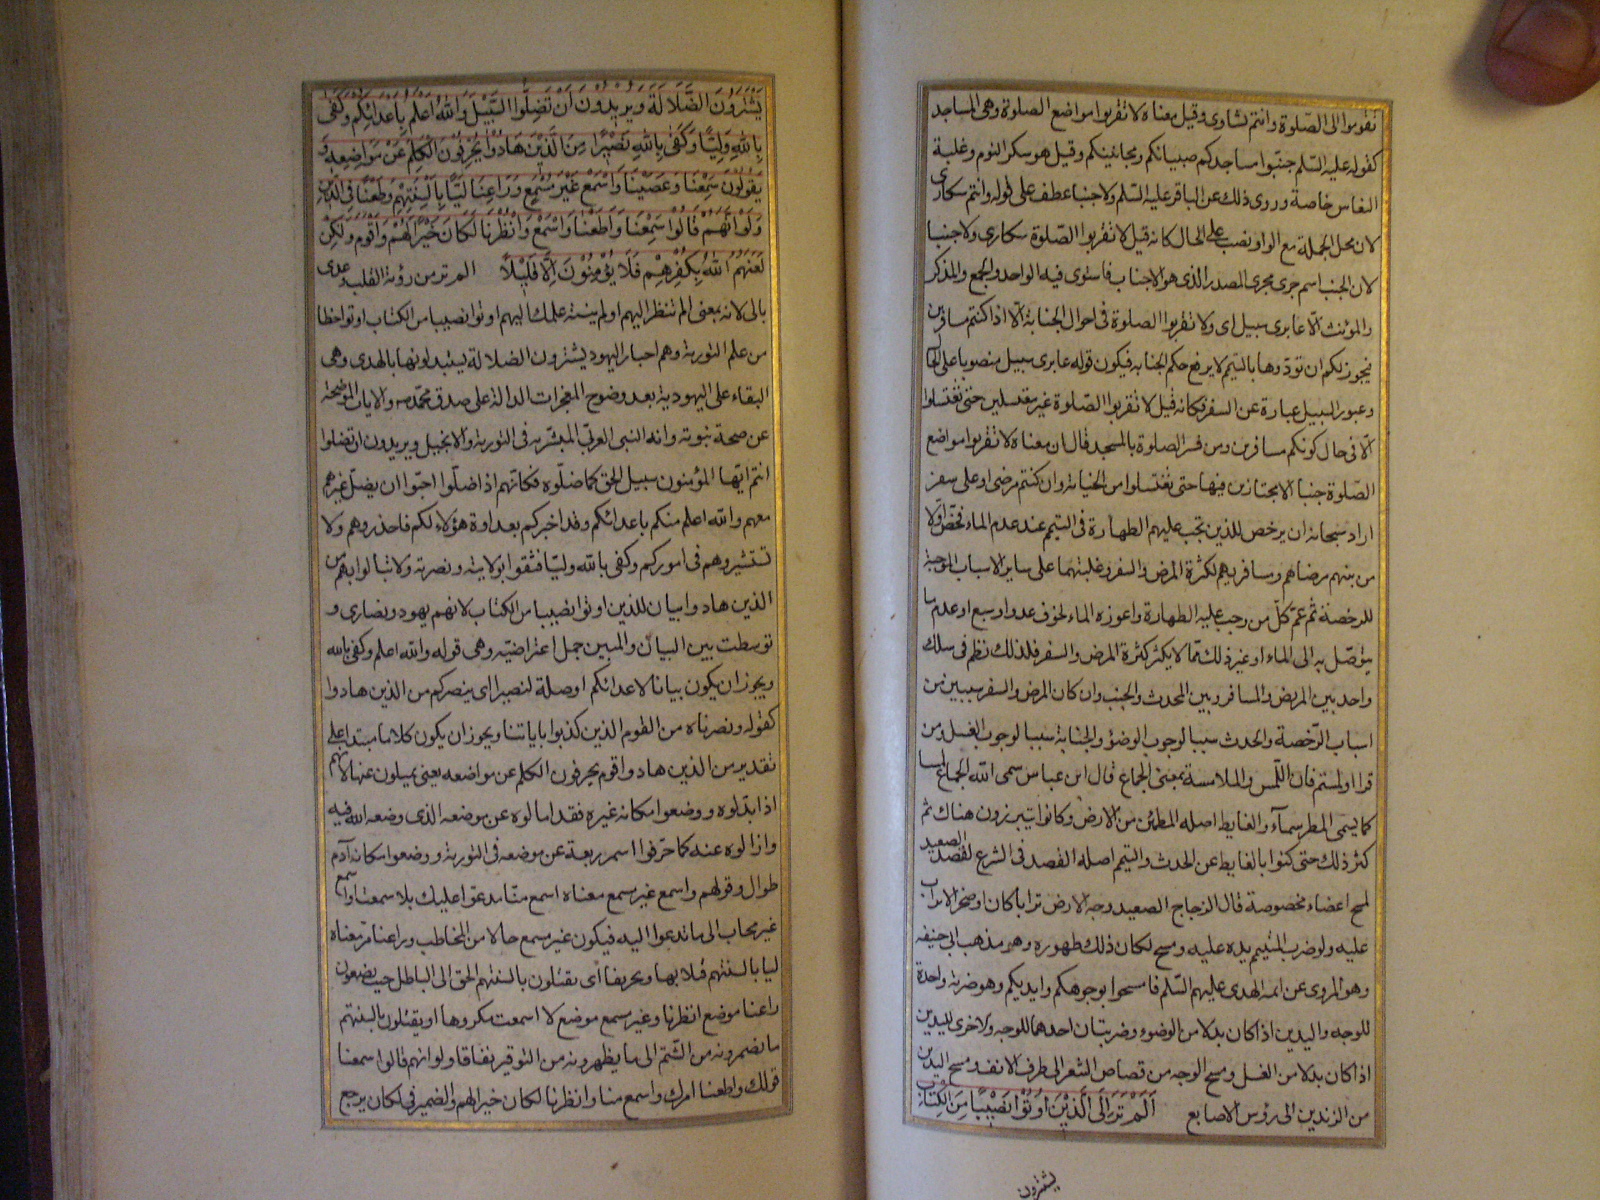 تقوموا الى الصّلوة وانتم نشاوى وقيل معناه لا تقربوا مواضع الصلوة وهى المساجد
كقوله عليه السّلم جنّبوا مساجدكم صبيانكم ومجانينكم وقيل هو سكر النوم وغلبة
النعاس خاصة وروى ذلك عن الباقر عليه السّلم ولا جنبا عطف على قوله وانتم سكارى
لان محل الجملة مع الواو نصب على الحال كانه قيل لا تقربوا الصّلوة سكارى ولا جنبا
لان الجنب اسم جرى مجرى المصدر الذى هو الاجناب فاستوى فيه الواحد والجمع والمذكر
والمؤنث الّا عابرى سبيل اى ولا تقربوا الصلوة فى احوال الجنابة الّا اذا كنتم مسافرين
فيجوز لكم ان تؤدّوها بالتيمم لا يرفع حكم الجنابه فيكون قوله عابرى سبيل منصوبا على الحال
وعبور السبيل عبارة عن السفر فكانه قيل لا تقربوا الصّلوة غير مغتسلين حتى تغتسلوا
الّا فى حال كونكم مسافرين ومن فسر الصلوة بالمسجد قال ان معناه لا تقربوا مواضع
الصّلوة جنبا الا مجتازين فيها حتى تغتسلوا من الجنابة وان كنتم مرضى او على سفر
اراد سبحانه ان يرخص للذين تجب عليهم الطهارة فى التيمم عند عدم الماء فخصّ اوّلا
من بينهم مرضاهم ومسافريهم لكثرة المرض والسفر وغلبتهما على ساير الاسباب الموجبة
للرخصة ثم عمّ كلّ من وجب عليه الطهارة واعوزه الماء لخوف عدو او سبع او عدم ما
يتوصّل به الى الماء او غير ذلك ممّا لا يكثر كثرة المرض والسفر فلذلك نظم فى سلك
واحد بين المريض والمسافر وبين المحدث والجنب وان كان المرض والسفر سببين من
اسباب الرّخصة والحدث سببا لوجوب الوضؤ والجنابة سببا لوجوب الغسل ومن
قرا او لمستم فان اللّمس والملامسة بمعنى الجماع قال ابن عباس سمى الله الجماع لمسا
كما يسمى المطر سمآء والغايط اصله المطمئن من الارض وكانوا يتبرزون هناك ثم
كثر ذلك حتى كنوا بالغايط عن الحدث والتيمم اصله القصد فى الشرع لقصد الصعيد
لمسح اعضاء مخصوصة قال الزجاج الصعيد وجه الارض ترابا كان او صخرا لا تراب
عليه ولو ضرب المتيمم يده عليه ومسح لكان ذلك طهوره وهو مذهب ابى حنيفه
وهو المروى عن ائمة الهدى عليهم السّلم فامسحوا بوجوهكم وايديكم وهو ضربة واحدة
للوجه واليدين اذا كان بدلا من الوضوء وضربتان احدهما للوجه والاخرى لليدين
اذا كان بدلا من الغسل ومسح الوجه من قصاص الشعر الى طرف الانف ومسح اليدين
من الزندين الى رؤس الاصابع اَلَمْ تَرَ اِلَى الَّذٖينَ اُوتُوا نَصٖيبًا مِنَ الْكِتَابِ
يشترون
يَشْتَرُونَ الضَّلَالَةَ وَيُرٖيدُونَ اَنْ تَضِلُّوا السَّبٖيلَ وَاللّٰهُ اَعْلَمُ بِاَعْدَائِكُمْ وَكَفٰى
بِاللّٰهِ وَلِيًّا وَكَفٰى بِاللّٰهِ نَصٖيرًا مِنَ الَّذٖينَ هَادُوا يُحَرِّفُونَ الْكَلِمَ عَنْ مَوَاضِعِهٖ وَ
يَقُولُونَ سَمِعْنَا وَعَصَيْنَا وَاسْمَعْ غَيْرَ مُسْمَعٍ وَرَاعِنَا لَيًّا بِاَلْسِنَتِهِمْ وَطَعْنًا فِى الدّٖينِ
وَلَوْ اَنَّهُمْ قَالُوا سَمِعْنَا وَاَطَعْنَا وَاسْمَعْ وَانْظُرْنَا لَكَانَ خَيْرًا لَهُمْ وَاَقْوَمَ وَلٰكِنْ
لَعَنَهُمُ اللّٰهُ بِكُفْرِهِمْ فَلَا يُؤْمِنُونَ اِلَّا قَلٖيلًا الم تر من رؤية القلب وعدى
بالى لانه بمعنى الم تنظر اليهم او لم ينته علمك اليهم اوتوا نصيبا من الكتاب اوتوا حظا
من علم التورية وهم احبار اليهود يشترون الضلالة يستبدلونها بالهدى وهى
البقاء على اليهودية بعد وضوح المعجزات الدالة على صدق محمّد ص والايات الموضحة
عن صحة نبوته وانه النبى العربى المبشّر به فى التورية والانجيل ويريدون ان تضلوا
انتم ايّها المؤمنون سبيل الحق كما ضلّوه فكانّهم اذا ضلّوا احبّوا ان يضلّ غيرهم
معهم والله اعلم منكم باعدائكم وقد اخبركم بعداوة هؤلاء لكم فاحذروهم ولا
تستشيروهم فى اموركم وكفى بالله وليّا فثقوا بولايته ونصرته ولا تبالوا بهم من
الذين هادوا بيان للذين اوتوا نصيبا من الكتاب لانهم يهود ونصارى و
توسطت بين البيان والمبين جمل اعتراضيّه وهى قوله والله اعلم وكفى بالله
ويجوز ان يكون بيانا لاعدائكم او صلة لنصيرا اى ينصركم من الذين هادوا
كقوله ونصرناه من القوم الذين كذبوا باياتنا ويجوز ان يكون كلاما مبتدا على
تقدير من الذين هادوا قوم يحرفون الكلم عن مواضعه يعنى يميلون عنها لانّهم
اذا بدّلوه ووضعوا مكانه غيره فقد امالوه عن موضعه الذى وضعه الله فيه
وازالوه عنه كما حرّفوا اسمر ربعة عن موضعه فى التورية ووضعوا مكانه آدم
طوال وقولهم واسمع غير مسمع معناه اسمع منّا مدعوّا عليك بلا سمعت او اسمع
غير مجاب الى ما تدعوا اليه فيكون غير مسمع حالا من المخاطب وراعنا مر معناه
ليا بالسنتهم فتلا بها وتحريفا اى يفتلون بالسنتهم الحق الى الباطل حيث يضعون
راعنا موضع انظرنا وغير مسمع موضع لا اسمعت مكروها او يفتلون بالسنتهم
ما يضمرونه من الشّتم الى ما يظهرونه من التوقير نفاقا ولو انهم قالوا سمعنا
قولك واطعنا امرك واسمع منا وانظرنا لكان خيرا لهم والضمير فى لكان يرجع